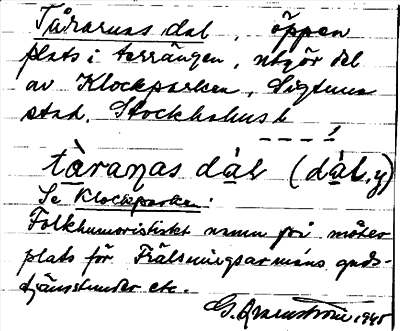 Tårarnas dal, öppen
plats i terrängen, utgör del
av Klockparken, Sigtuna
stad, Stockholms l.
tåranas dal (dal, y)
Se Klockparken.
Folkhumoristiskt namn på mötes-
plats för Frälsningsarméns guds-
tjänststunder etc.
G. Qvarnström 1945